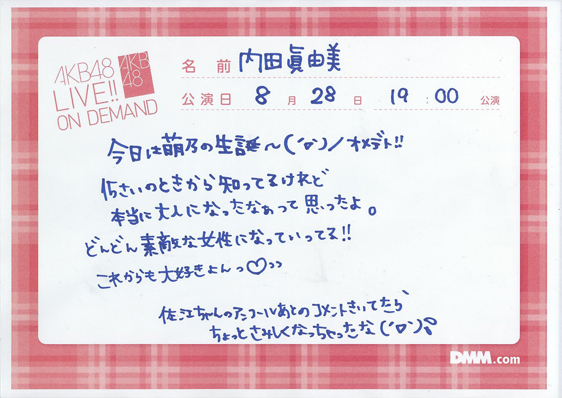 AKB48
LIVE!!
ON DEMAND
AKB
48
名 前 内田眞由美
公演日 8 月 28 日 19 : 00 公演
今日は萌乃の生誕〜(´ロ`)ノオメデト!!
15さいのときから知ってるけれど
本当に大人になったなぁって思ったよ。
どんどん素敵な女性になっていってる!!
これからも大好きよんっ♡››
佐江ちゃんのアンコールあとのコメントきいてたら
ちょっとさみしくなっちゃったな(´ロ`)
DMM.com